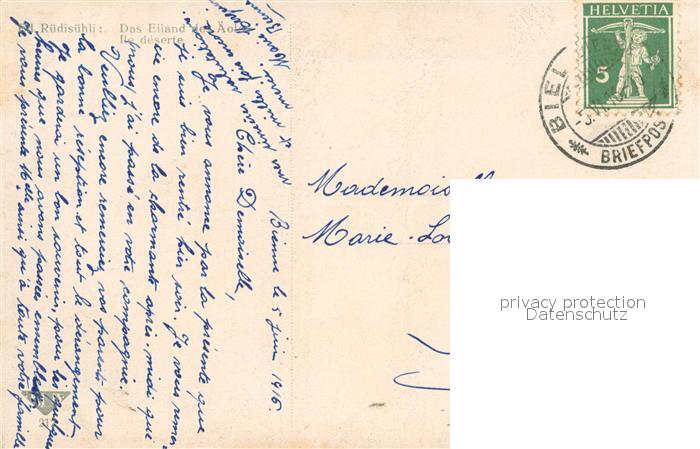 Ed. Rüdisühli: Das Eiland des Äolus
Ile déserte
HELVETIA
5
BIEL
BRIEFPOST
Mademoiselle
Marie-Lou
privacy protection
Datenschutz
Bienne le 5 juin 1916.
Chère Demoiselle,
Je vous annonce par la présente que
je suis bien rentré hier soir. Je vous remer
cie encore de la charmante après-midi que
j'ai passé en votre campagne.
Veuillez encore remercier vos parents pour
la bonne réception et tout le dérangement
Je garderai un bon souvenir, pour les quelques
heures que nous avons passées ensemble.
Je vous présente ainsi qu'à toute votre famille